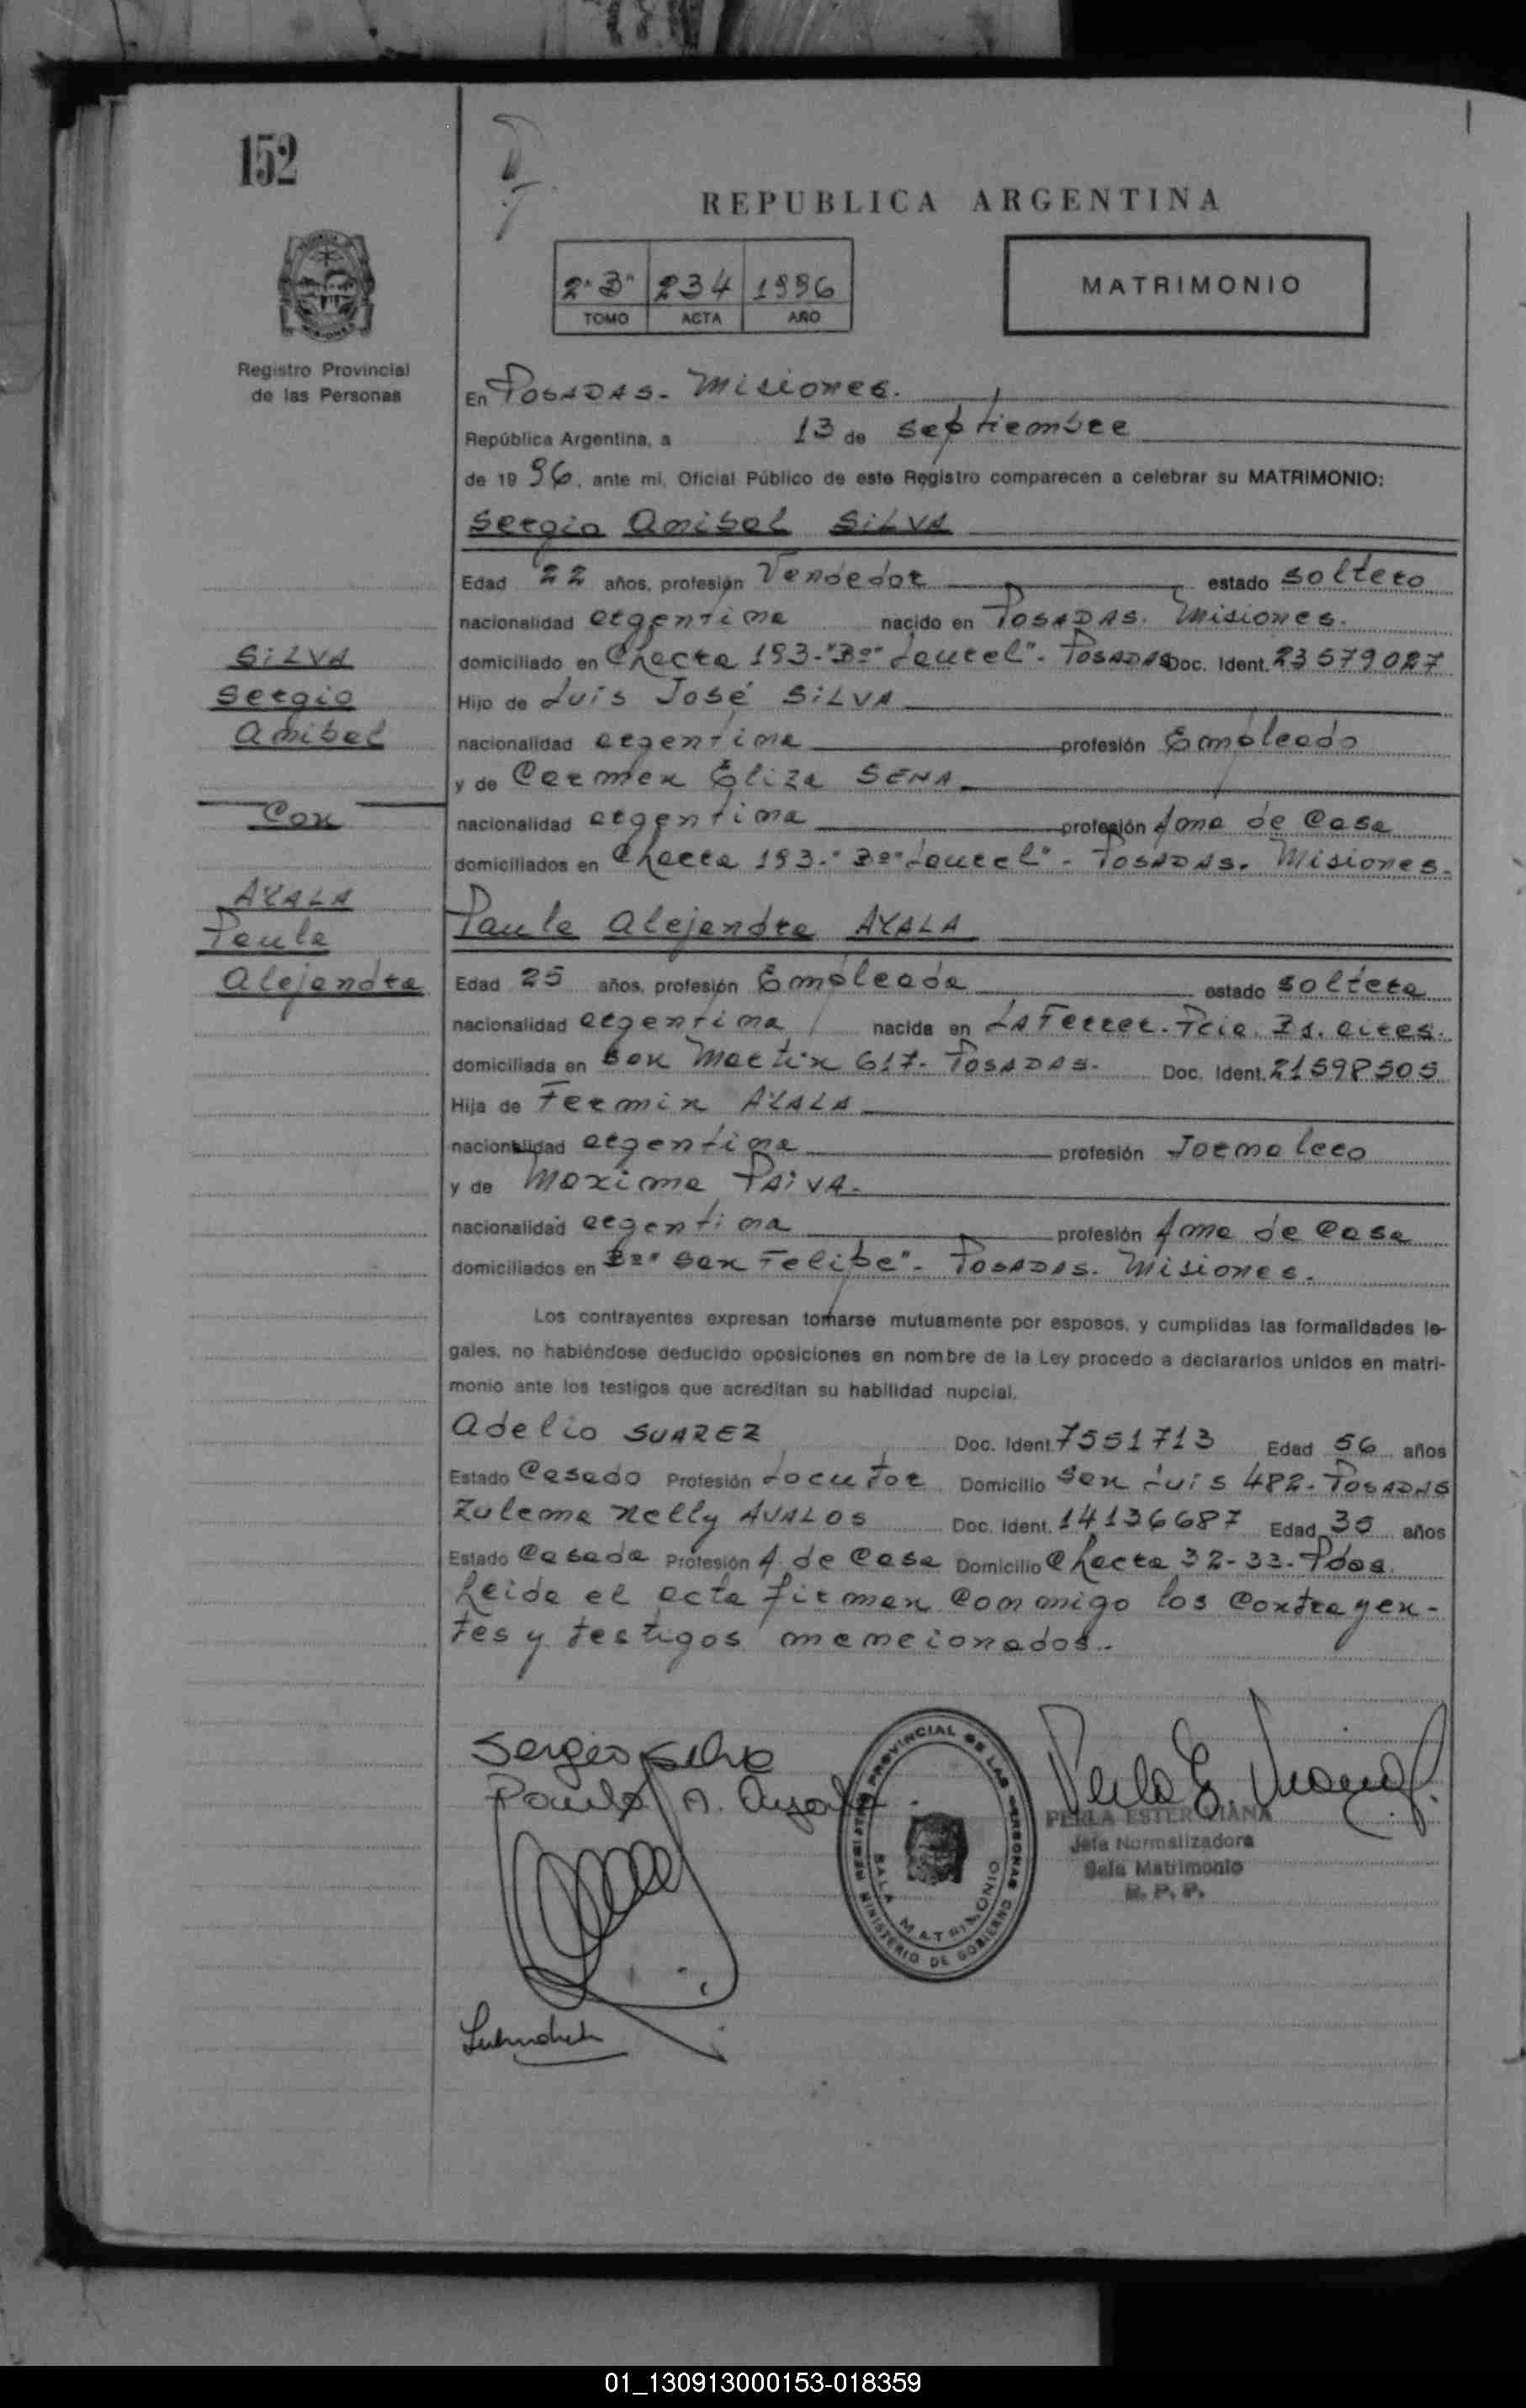 152
REPUBLICA ARGENTINA
2º"B" 234 1996
TOMO ACTA AÑO
MATRIMONIO
Registro Provincial
de las Personas
En POSADAS - Misiones.
República Argentina, a 13 de septiembre
de 1996, ante mi, Oficial Público de este Registro comparecen a celebrar su MATRIMONIO:
Sergio Anibal SILVA
Edad 22 años, profesión Vendedor estado soltero
nacionalidad argentina nacido en POSADAS. Misiones.
domiciliado en Chacra 193-"Bº" Laurel"- POSADAS Doc. Ident. 23579027
Hijo de Luis José SILVA
nacionalidad argentina profesión Empleado
y de Carmen Eliza SENA
nacionalidad argentina profesión Ama de Casa
domiciliados en Chacra 193-"Bº" Laurel"- POSADAS. Misiones.
SILVA
Sergio
Anibal
Con
AYALA
Paula
Alejandra
Paula Alejandra AYALA
Edad 25 años, profesión Empleada estado soltera
nacionalidad argentina nacida en LAFerrer. Pcia. Bs. aires.
domiciliada en San Martin 617- POSADAS. Doc. Ident. 21598505
Hija de Fermin AYALA
nacionalidad argentina profesión Jornalero
y de Maxima PAIVA.
nacionalidad argentina profesión Ama de Casa
domiciliados en Bº" San Felipe"- POSADAS. Misiones.
Los contrayentes expresan tomarse mutuamente por esposos, y cumplidas las formalidades le-
gales, no habiéndose deducido oposiciones en nombre de la Ley procedo a declararlos unidos en matri-
monio ante los testigos que acreditan su habilidad nupcial.
Adelio SUAREZ Doc. Ident. 7551713 Edad 56 años
Estado Casado Profesión Locutor Domicilio San Luis 482- POSADAS
Zulema Nelly AVALOS Doc. Ident. 14136687 Edad 35 años
Estado Casada Profesión A. de Casa Domicilio Chacra 32-33- Pdas.
Leida el acta firman conmigo los contrayen-
tes y testigos mencionados.-
Sergio Silva
Paula A. Ayala
REGISTRO PROVINCIAL DE LAS PERSONAS
SALA MATRIMONIO
MINISTERIO DE GOBIERNO
PERLA ESTER VIANA
Jefa Normalizadora
Sala Matrimonio
R. P. P.
01_130913000153-018359